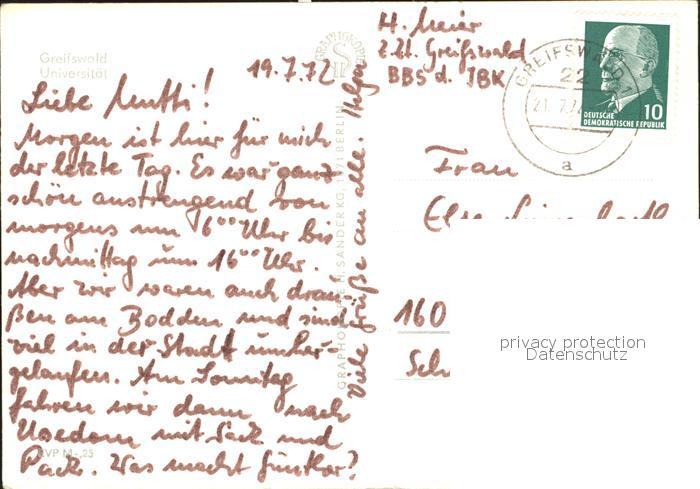 Greifswald
Universität
19.7.72
Liebe Mutti!
Morgen ist hier für mich
der letzte Tag. Es war ganz
schön anstrengend von
morgens um 6⁰⁰ Uhr bis
nachmittag um 16⁰⁰ Uhr.
Aber wir waren auch drau-
ßen am Bodden und sind
viel in der Stadt umher-
gelaufen. Am Sonntag
fahren wir dann nach
Usedom mit Sack und
Pack. Was macht Günther?
Viele Grüße an alle. Helga
EVP M -,25
GRAPHOKOPIE H. SANDER KG, 1071 BERLIN
GRAPHOKOPIE
H. Meier
z.Zt. Greifswald
BBS d. IBK
GREIFSWALD 1
22
21.7.72
a
10
DEUTSCHE
DEMOKRATISCHE REPUBLIK
Frau
160
privacy protection
Datenschutz